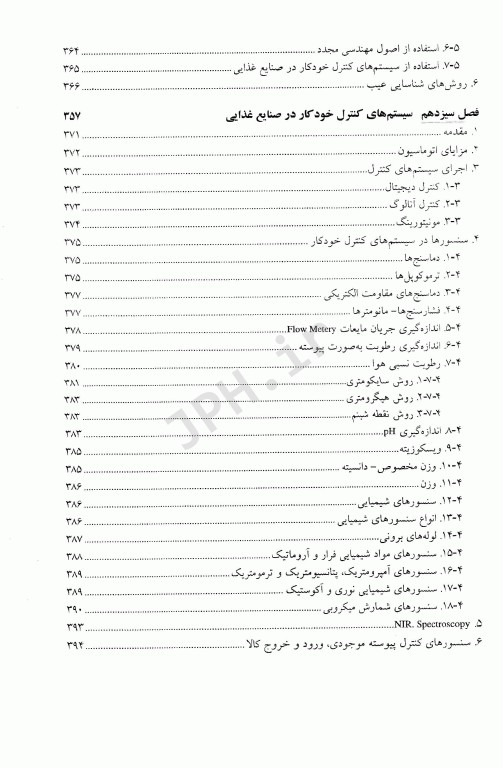 ۵-۶. استفاده از اصول مهندسی مجدد ........ ۳۶۴
۵-۷. استفاده از سیستم‌های کنترل خودکار در صنایع غذایی ........ ۳۶۵
۶. روش‌های شناسایی عیب ........ ۳۶۶
فصل سیزدهم سیستم‌های کنترل خودکار در صنایع غذایی ۳۵۷
۱. مقدمه ........ ۳۷۱
۲. مزایای اتوماسیون ........ ۳۷۲
۳. اجرای سیستم‌های کنترل ........ ۳۷۳
۳-۱. کنترل دیجیتال ........ ۳۷۳
۳-۲. کنترل آنالوگ ........ ۳۷۳
۳-۳. مونیتورینگ ........ ۳۷۴
۴. سنسورها در سیستم‌های کنترل خودکار ........ ۳۷۵
۴-۱. دماسنج‌ها ........ ۳۷۵
۴-۲. ترموکوپل‌ها ........ ۳۷۵
۴-۳. دماسنج‌های مقاومت الکتریکی ........ ۳۷۷
۴-۴. فشارسنج‌ها- مانومترها ........ ۳۷۷
۴-۵. اندازه‌گیری جریان مایعات Flow Metery ........ ۳۷۸
۴-۶. اندازه‌گیری رطوبت به‌صورت پیوسته ........ ۳۷۹
۴-۷. رطوبت نسبی هوا ........ ۳۸۰
۴-۷-۱. روش سایکومتری ........ ۳۸۱
۴-۷-۲. روش هیگرومتری ........ ۳۸۳
۴-۷-۳. روش نقطه شبنم ........ ۳۸۳
۴-۸. اندازه‌گیری pH ........ ۳۸۳
۴-۹. ویسکوزیته ........ ۳۸۵
۴-۱۰. وزن مخصوص- دانسیته ........ ۳۸۵
۴-۱۱. وزن ........ ۳۸۶
۴-۱۲. سنسورهای شیمیایی ........ ۳۸۶
۴-۱۳. انواع سنسورهای شیمیایی ........ ۳۸۶
۴-۱۴. لوله‌های برونی ........ ۳۸۷
۴-۱۵. سنسورهای مواد شیمیایی فرار و آروماتیک ........ ۳۸۸
۴-۱۶. سنسورهای آمپرومتریک، پتانسیومتریک و ترمومتریک ........ ۳۸۹
۴-۱۷. سنسورهای شیمیایی نوری و آکوستیک ........ ۳۸۹
۴-۱۸. سنسورهای شمارش میکروبی ........ ۳۹۰
۵. NIR. Spectroscopy ........ ۳۹۳
۶. سنسورهای کنترل پیوسته موجودی، ورود و خروج کالا ........ ۳۹۴
JPH.ir